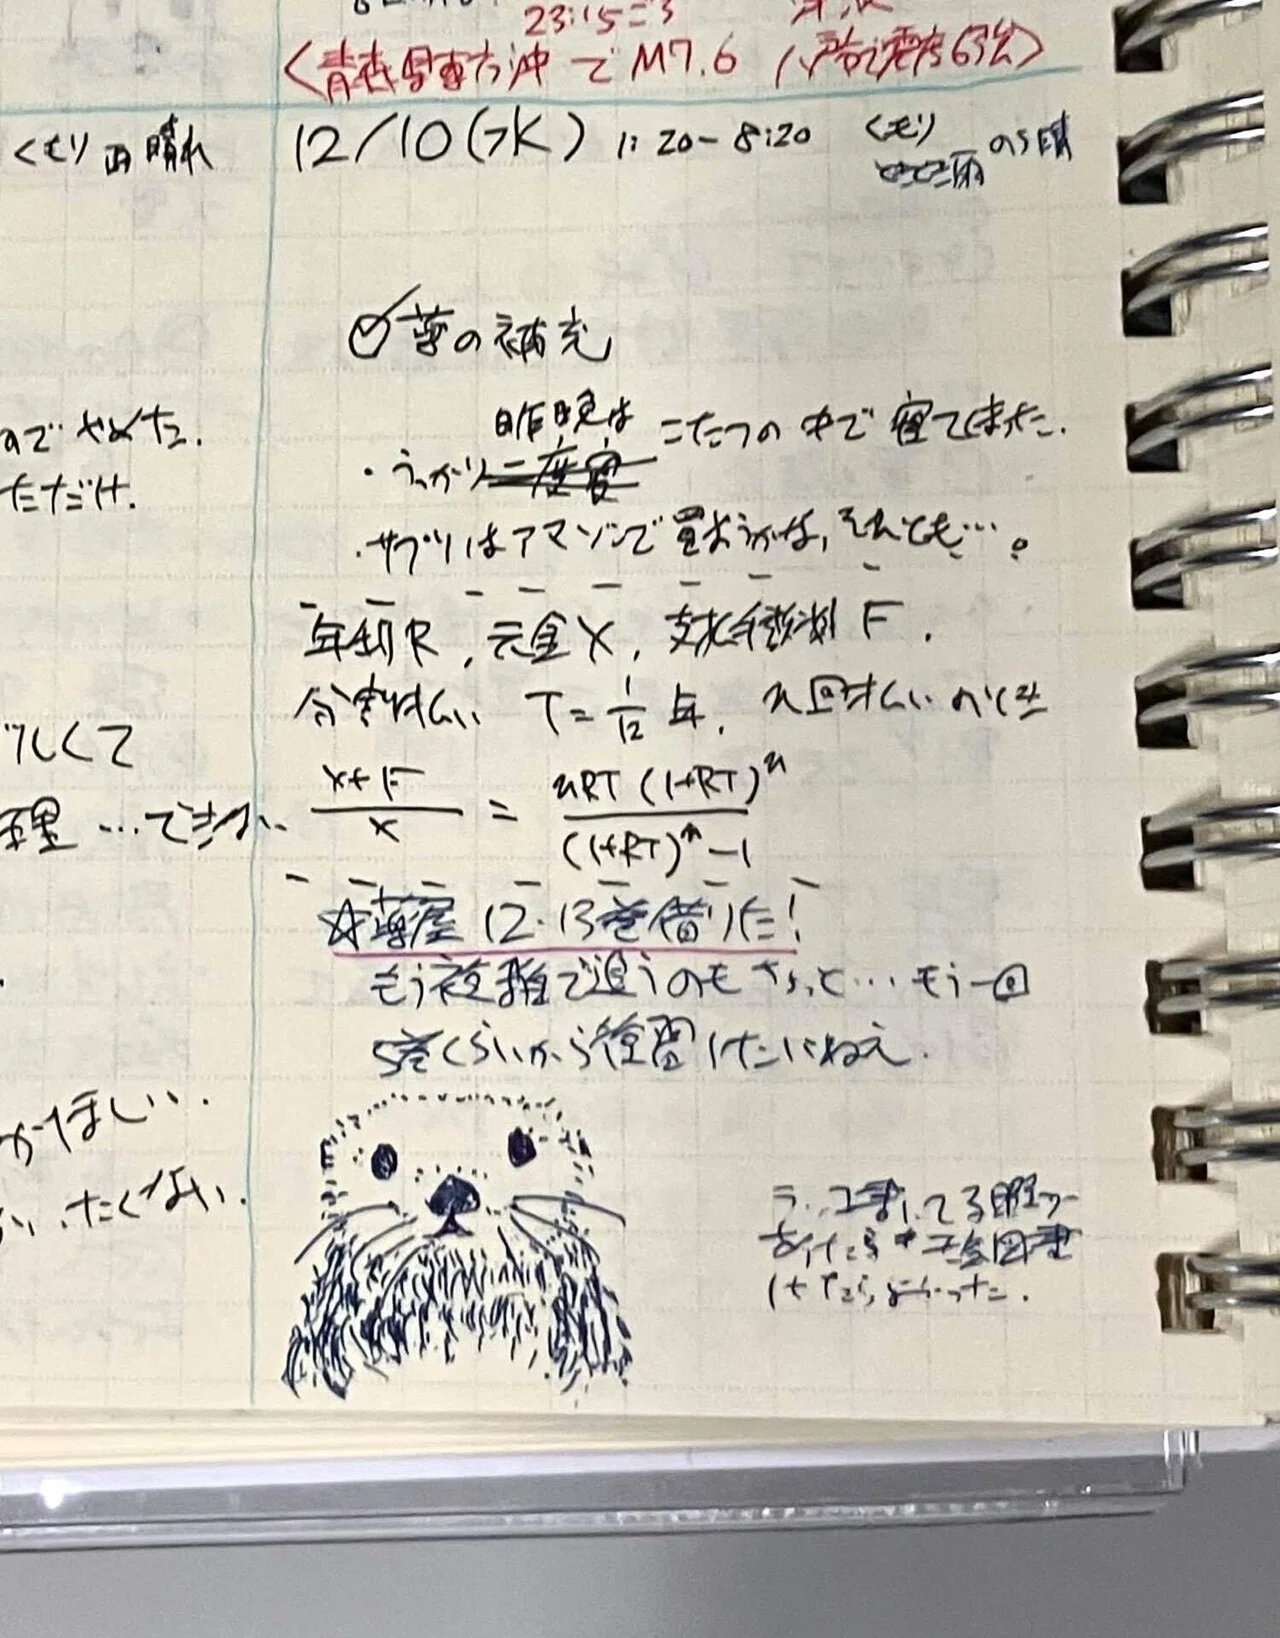 23:15ごろ
<青森県東方沖でM7.6 八戸で震度6強>
くもり 雨 晴れ
12/10(水) 1:20-8:20 くもり のち晴
雨
薬の補充
昨晩は
・うっかり二度寝 こたつの中で寝てしまった.
・サプリはアマゾンで買おうかな,それとも….
年利R, 元金X, 支払手数料F.
分割払い T=1/12年, n回払いのとき
(X+F)/X = nRT(1+RT)^n/((1+RT)^n-1)
☆薬屋12・13巻借りた!
もう複雑で追うのもちょっと…もう一回
5巻くらいから復習したいねえ.
のでやめた.
ただけ.
しくて
理…できか.
ほしい.
たくない.